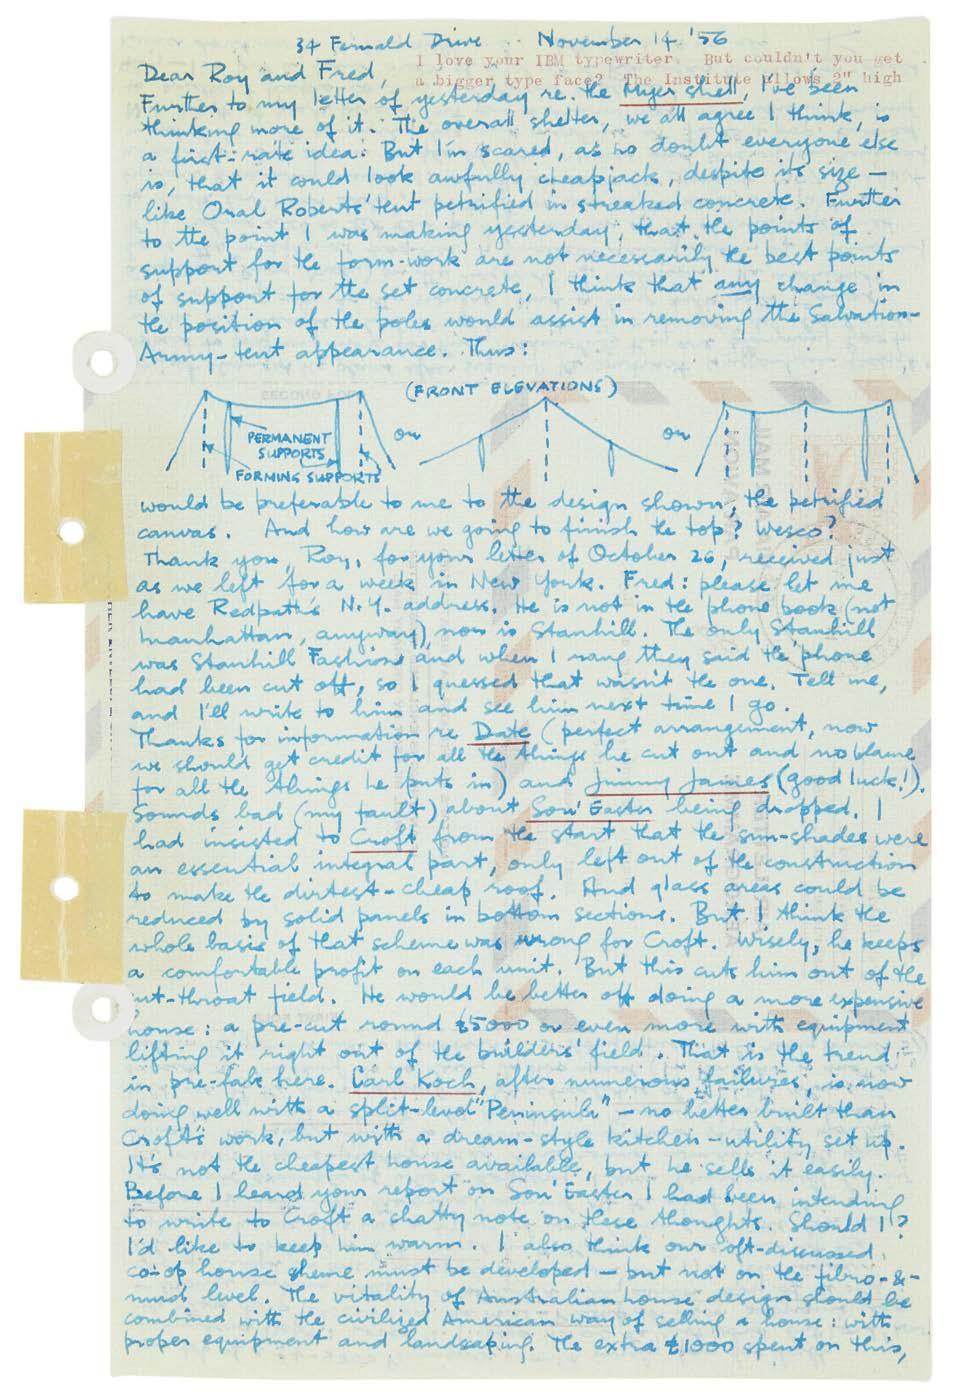 34 Fernald Drive November 14 '56
I love your IBM typewriter. But couldn't you get
a bigger type face? The Institute allows 2" high
Dear Roy and Fred,
Further to my letter of yesterday re. the Myer shell, I've been
thinking more of it. The overall shelter, we all agree I think, is
a first-rate idea. But I'm scared, as no doubt everyone else
is, that it could look awfully cheapjack, despite its size —
like Oral Roberts' tent petrified in streaked concrete. Further
to the point I was making yesterday, that the points of
support for the form-work are not necessarily the best points
of support for the set concrete, I think that any change in
the position of the poles would assist in removing the Salvation-
Army-tent appearance. Thus:
(FRONT ELEVATIONS)
PERMANENT
SUPPORTS
FORMING SUPPORTS
or
or
would be preferable to me to the design shown, the petrified
canvas. And how are we going to finish the top? Wesco?
Thank you, Roy, for your letter of October 26, received just
as we left for a week in New York. Fred: please let me
have Redpath's N.Y. address. He is not in the phone book (not
Manhattan, anyway), nor is Stanhill. The only Stanhill
was Stanhill Fashions and when I rang they said the 'phone
had been cut off, so I guessed that wasn't the one. Tell me,
and I'll write to him and see him next time I go.
Thanks for information re Date (perfect arrangement, now
we should get credit for all the things he cut out and no blame
for all the things he puts in) and Jimmy James (good luck!).
Sounds bad (my fault) about Sou'Easter being dropped. I
had insisted to Croft from the start that the sun-shades were
an essential integral part, only left out of the construction
to make the dirtest-cheap roof. And glass areas could be
reduced by solid panels in bottom sections. But I think the
whole basis of that scheme was wrong for Croft. Wisely, he keeps
a comfortable profit on each unit. But this cuts him out of the
cut-throat field. He would be better off doing a more expensive
house: a pre-cut round £5000 or even more with equipment
lifting it right out of the builders' field. That is the trend
in pre-fab here. Carl Koch, after numerous failures, is now
doing well with a split-level "Peninsula" — no better built than
Croft's work, but with a dream-style kitchen-utility set up.
It's not the cheapest house available, but he sells it easily.
Before I heard your report on Sou'Easter I had been intending
to write to Croft a chatty note on these thoughts. Should I?
I'd like to keep him warm. I also think our oft-discussed
co-op house sheme must be developed — but not on the fibro-&-
mud level. The vitality of Australian house design should be
combined with the civilized American way of selling a house: with
proper equipment and landscaping. The extra £1000 spent on this,